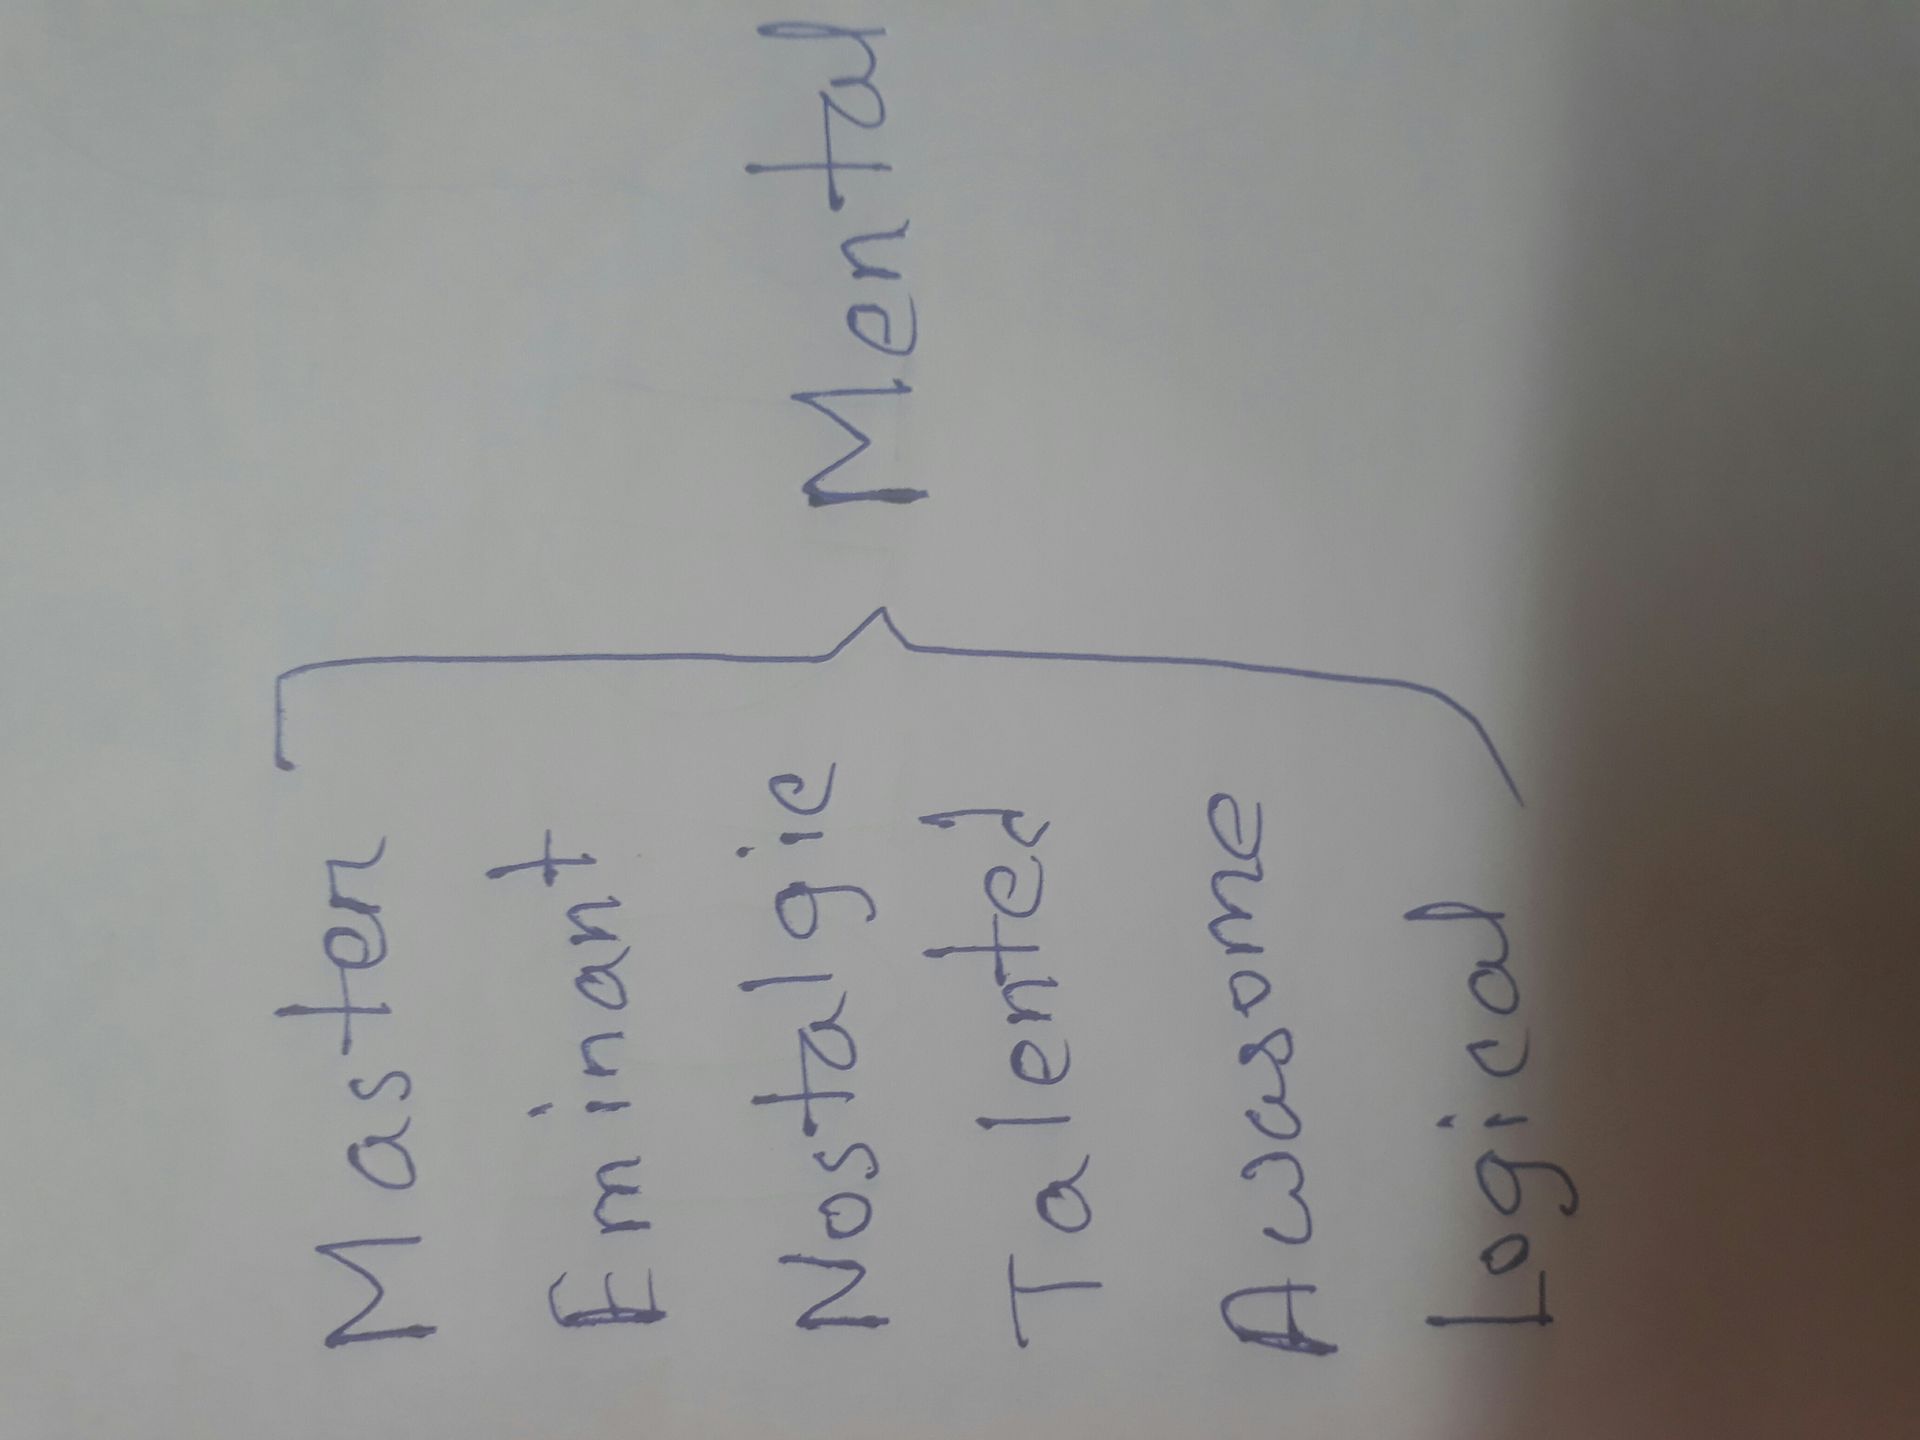 Master
Eminant
Nostalgic
Talented
Awasome
Logical
Mental